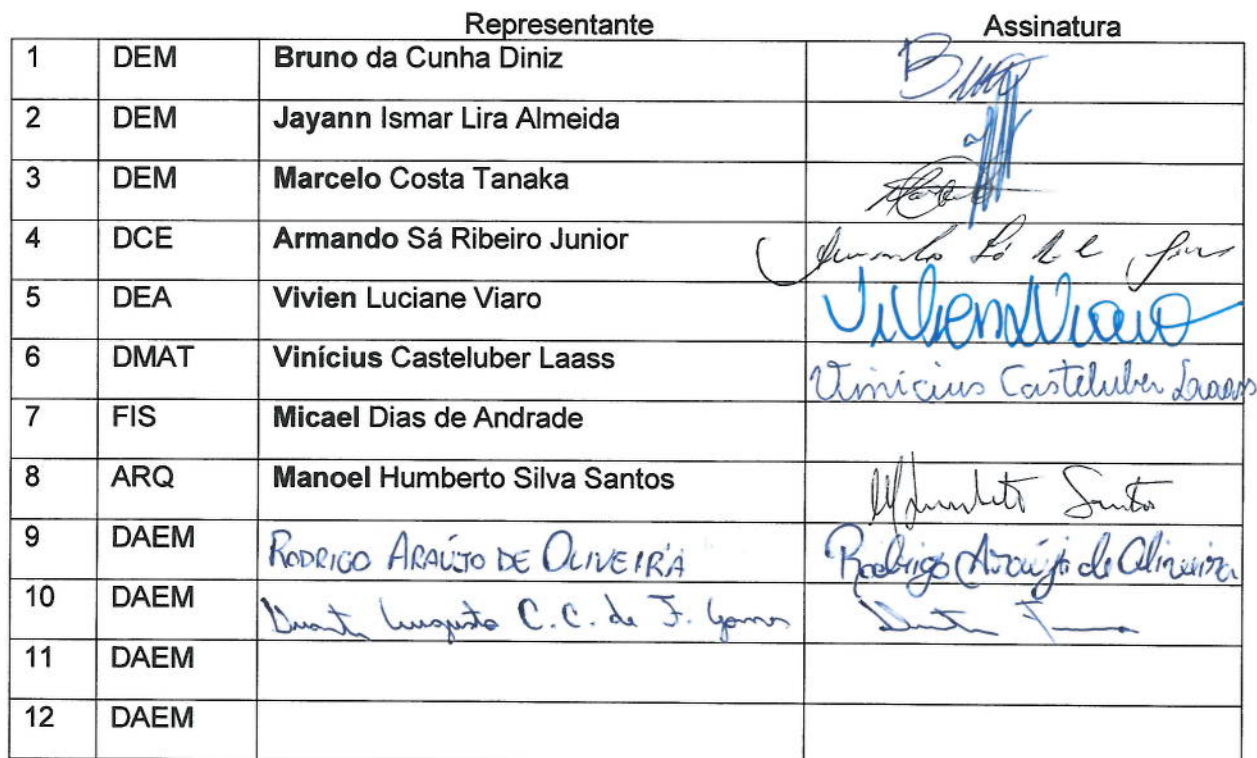 Representante Assinatura
1 DEM Bruno da Cunha Diniz
2 DEM Jayann Ismar Lira Almeida
3 DEM Marcelo Costa Tanaka
4 DCE Armando Sá Ribeiro Junior
5 DEA Vivien Luciane Viaro Vivien Viaro
6 DMAT Vinícius Casteluber Laass Vinicius Casteluber Laass
7 FIS Micael Dias de Andrade
8 ARQ Manoel Humberto Silva Santos MHumberto Santos
9 DAEM RODRIGO ARAÚJO DE OLIVEIRA Rodrigo Araújo de Oliveira
10 DAEM Augusto C. C. de F. Gomes
11 DAEM
12 DAEM